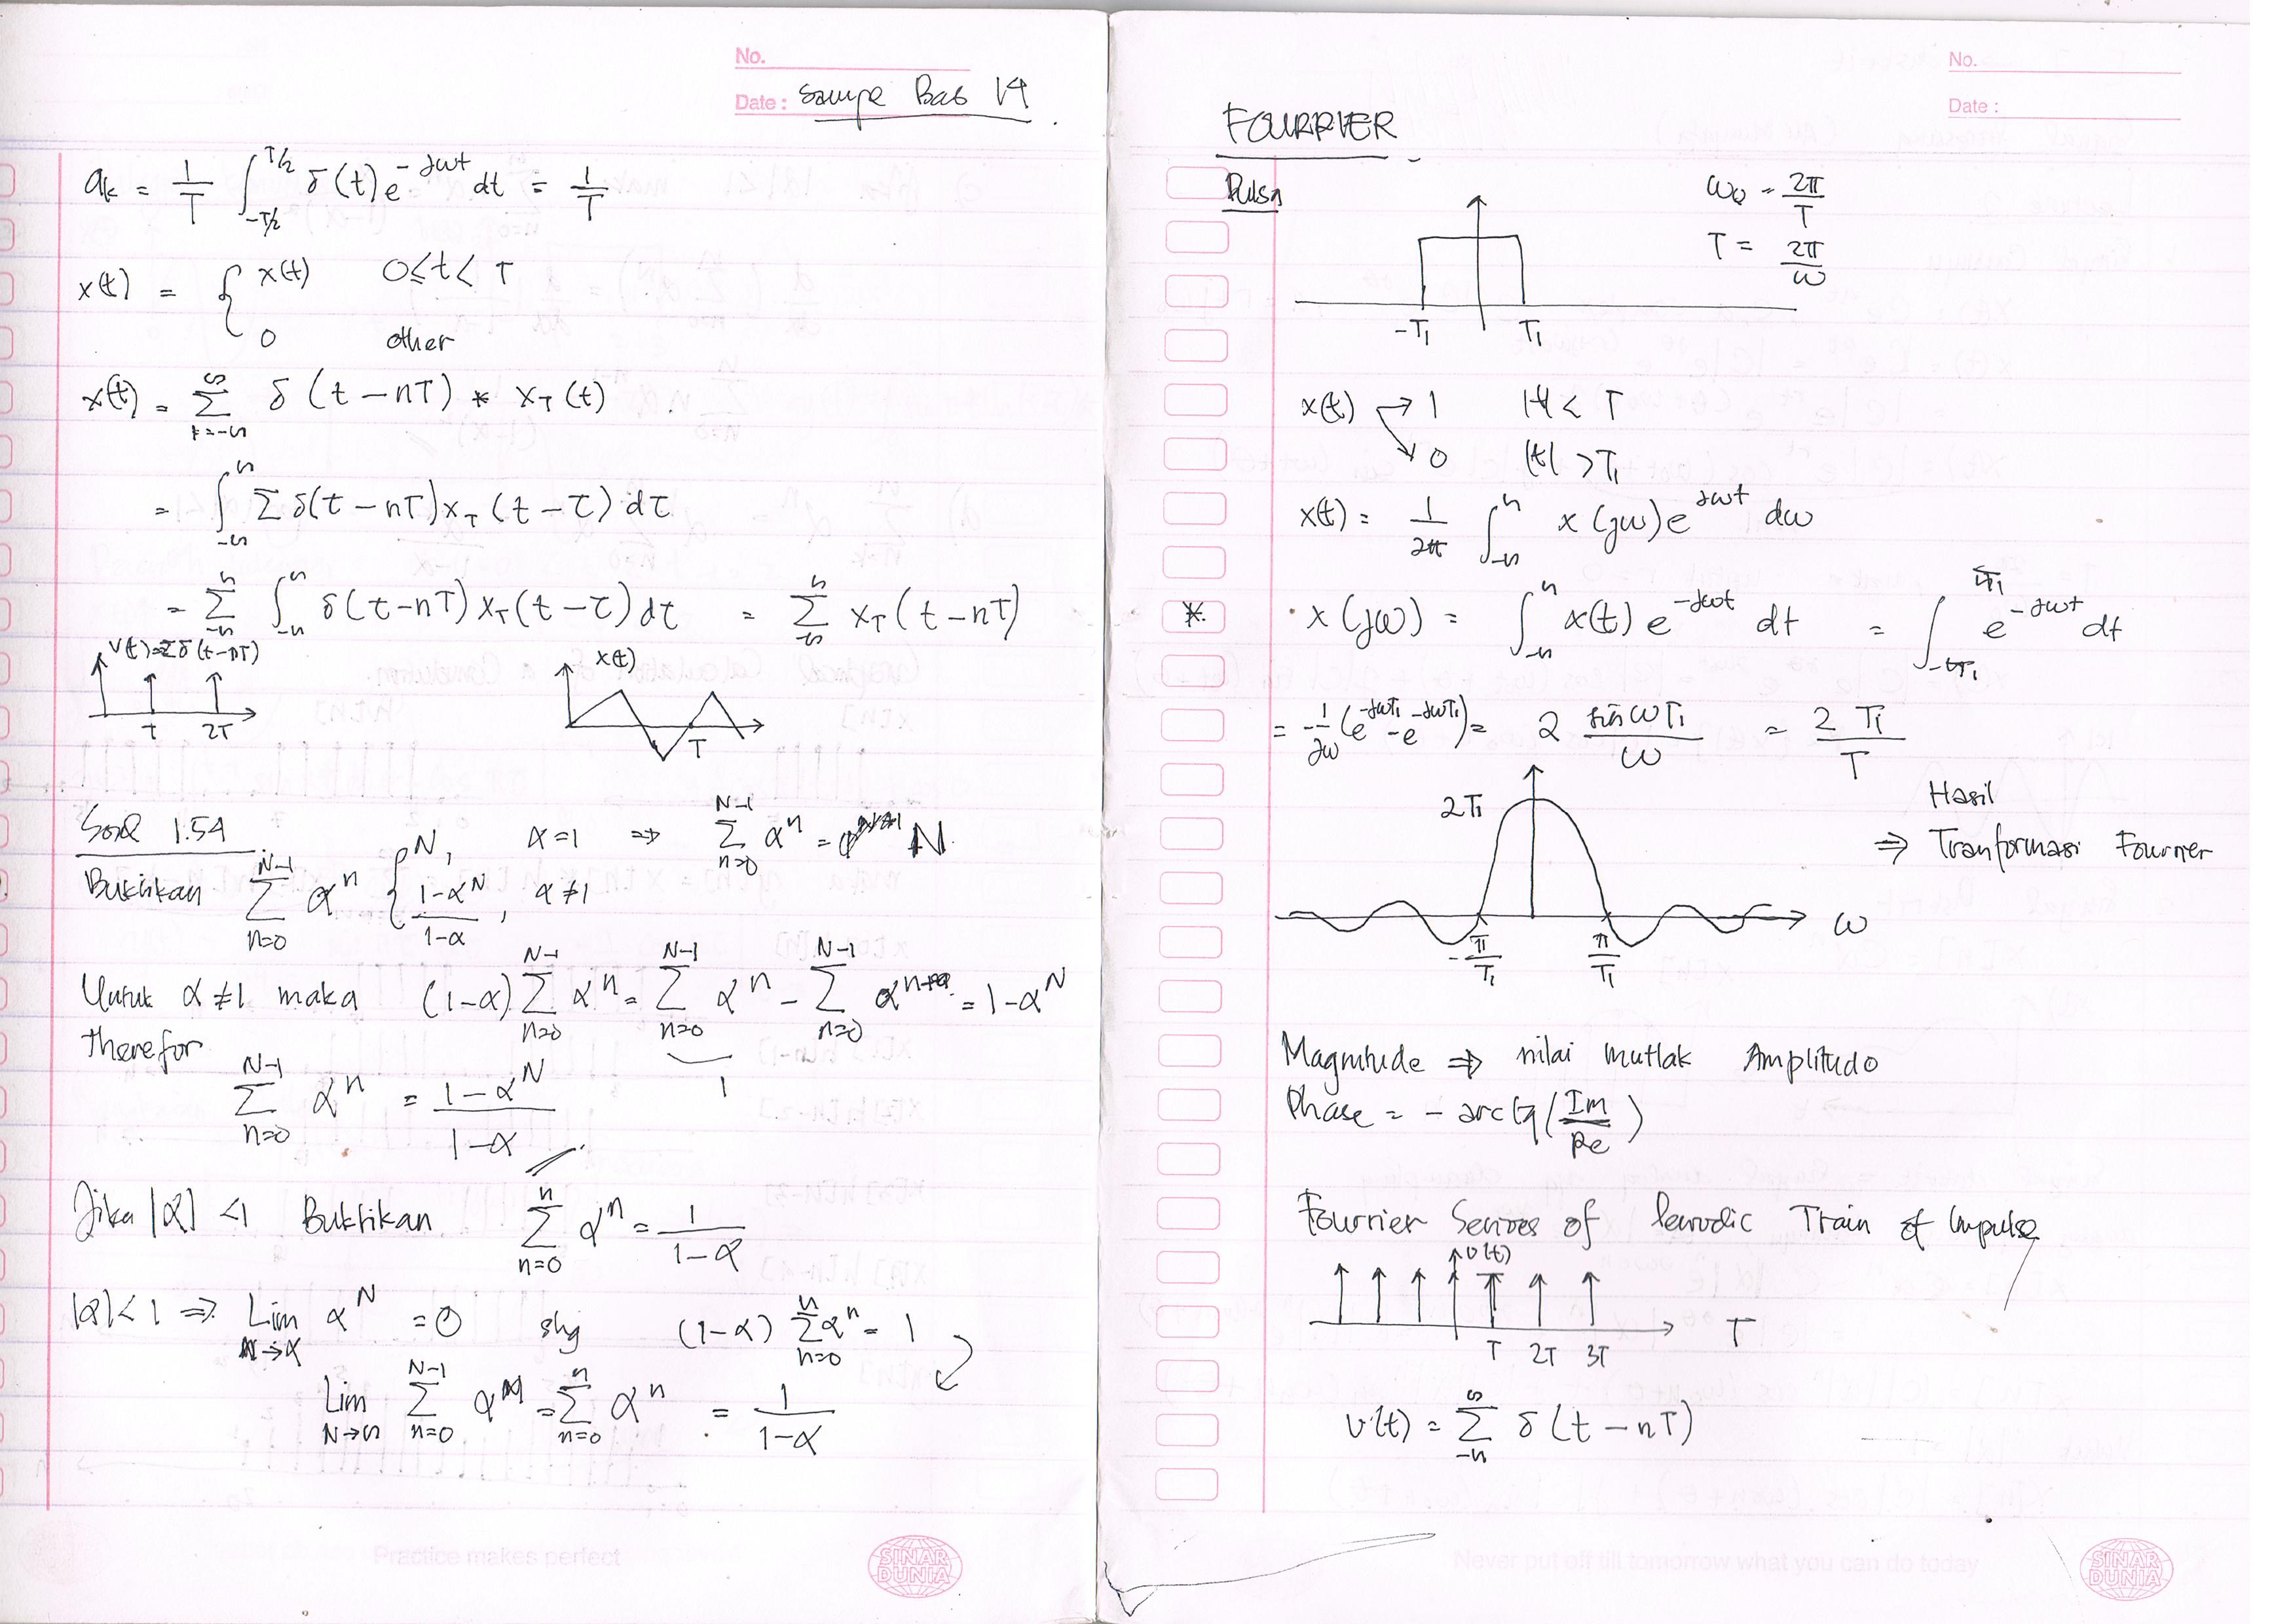 No.
Date : Sampe Bab 14
a_k = 1/T ∫_{-T/2}^{T/2} δ(t) e^{-jωt} dt = 1/T
x(t) = { x(t)   0 ≤ t < T
0   other
x(t) = Σ_{=-∞}^{∞} δ(t - nT) * x_T(t)
= ∫_{-∞}^{∞} Σ δ(τ - nT) x_T(t - τ) dτ
= Σ_{-∞}^{∞} ∫_{-∞}^{∞} δ(τ - nT) x_T(t - τ) dτ = Σ_{-∞}^{∞} x_T(t - nT)
v(t) = Σδ(t - nT)
T   2T
x(t)
T
Soal 1.54
Buktikan Σ_{n=0}^{N-1} α^n { N, α=1 ⇒ Σ_{n=0}^{N-1} α^n = N.
(1-α^N)/(1-α), α≠1
Untuk α≠1 maka (1-α) Σ_{n=0}^{N-1} α^n = Σ_{n=0}^{N-1} α^n - Σ_{n=0}^{N-1} α^{n+1} = 1-α^N
1
therefor
Σ_{n=0}^{N-1} α^n = (1-α^N)/(1-α)
Jika |α| <1 Buktikan Σ_{n=0}^{∞} α^n = 1/(1-α)
|α|<1 ⇒ Lim_{N→∞} α^N = 0 shg (1-α) Σ_{n=0}^{∞} α^n = 1
Lim_{N→∞} Σ_{n=0}^{N-1} α^n = Σ_{n=0}^{∞} α^n = 1/(1-α)
Practice makes perfect
SINAR DUNIA
No.
Date :
FOURRIER
Pulsa
ω_0 = 2π/T
T = 2π/ω
-T_1   T_1
x(t) → 1   |t| < T
0   |t| > T_1
x(t) = 1/2π ∫_{-∞}^{∞} x(jω) e^{jωt} dω
*. x(jω) = ∫_{-∞}^{∞} x(t) e^{-jωt} dt = ∫_{-T_1}^{T_1} e^{-jωt} dt
= -1/jω (e^{-jωT_1} - e^{-jωT_1}) = 2 sin ωT_1/ω = 2 T_1/T
2T_1
Hasil
⇒ Tranformasi Fourrier
ω
-π/T_1   π/T_1
Magnitude ⇒ nilai mutlak Amplitudo
Phase = - arc tg (Im/Re)
Fourrier Serires of Periodic Train of Impulse
v(t)
T   2T   3T   T
v(t) = Σ_{-∞}^{∞} δ(t - nT)
Never put off till tomorrow what you can do today
SINAR DUNIA